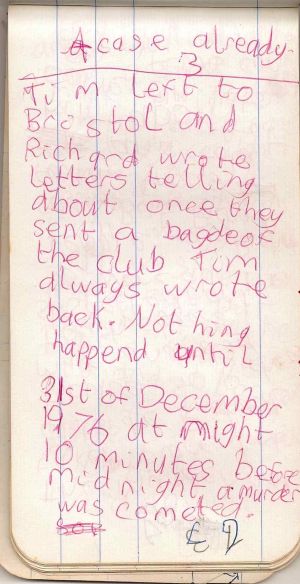 A case already.
3
Tim left to
BristoL and
Richard wrote
Letters telling
about once they
sent a bagde of
the club Tim
always wrote
back. Nothing
happend until
31st of December
1976 at might
10 minutes before
midnight a murder
was cometed.